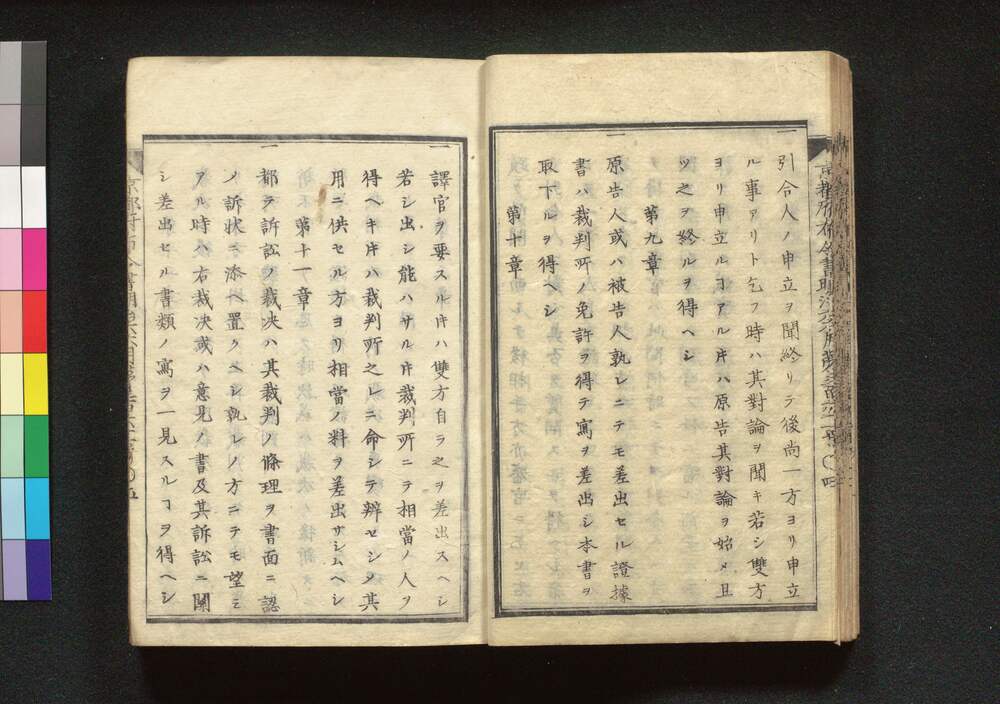 一 引合人ノ申立ヲ聞終リテ後尚一方ヨリ申立
ル事アリト乞フ時ハ其對論ヲ聞キ若シ雙方
ヨリ申立ルヿアル片ハ原告其對論ヲ始メ且
ツ之ヲ終ルヲ得ヘシ
第九章
一 原告人或ハ被告人孰レニテモ差出セル證據
書ハ裁判所ノ免許ヲ得テ寫ヲ差出シ本書ヲ
取下ルヲ得ヘシ
第十章
一 譯官ヲ要スル片ハ雙方自ラ之ヲ差出スヘシ
若シ出シ能ハサル片裁判所ニテ相當ノ人ヲ
得ヘキ片ハ裁判所之レニ命シテ辨セシメ其
用ニ供セル方ヨリ相當ノ料ヲ差出サシムヘシ
第十一章
一 都テ訴訟ノ裁决ハ其裁判ノ條理ヲ書面ニ認
メ訴状ニ添ヘ置クベシ孰レノ方ニテモ望ミ
アル時ハ右裁决或ハ意見ノ書及其訴訟ニ關
シ差出セル書類ノ寫ヲ一見スルヿヲ得ヘシ